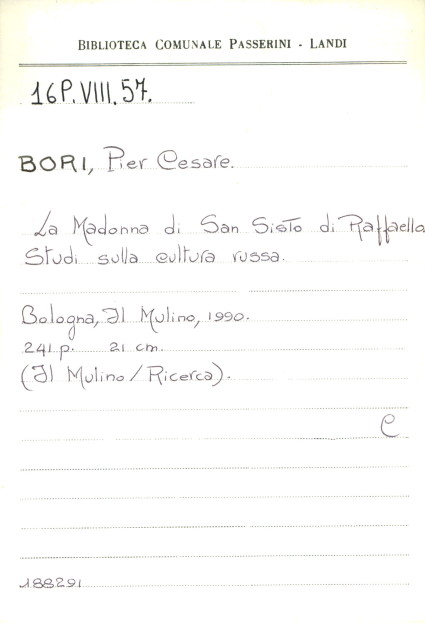 BIBLIOTECA COMUNALE PASSERINI - LANDI
16P.VIII.57.
BORI, Pier Cesare.
La Madonna di San Sisto di Raffaello
Studi sulla cultura russa.
Bologna, Il Mulino, 1990.
241 p. 21 cm.
(Il Mulino/Ricerca).
C
188291